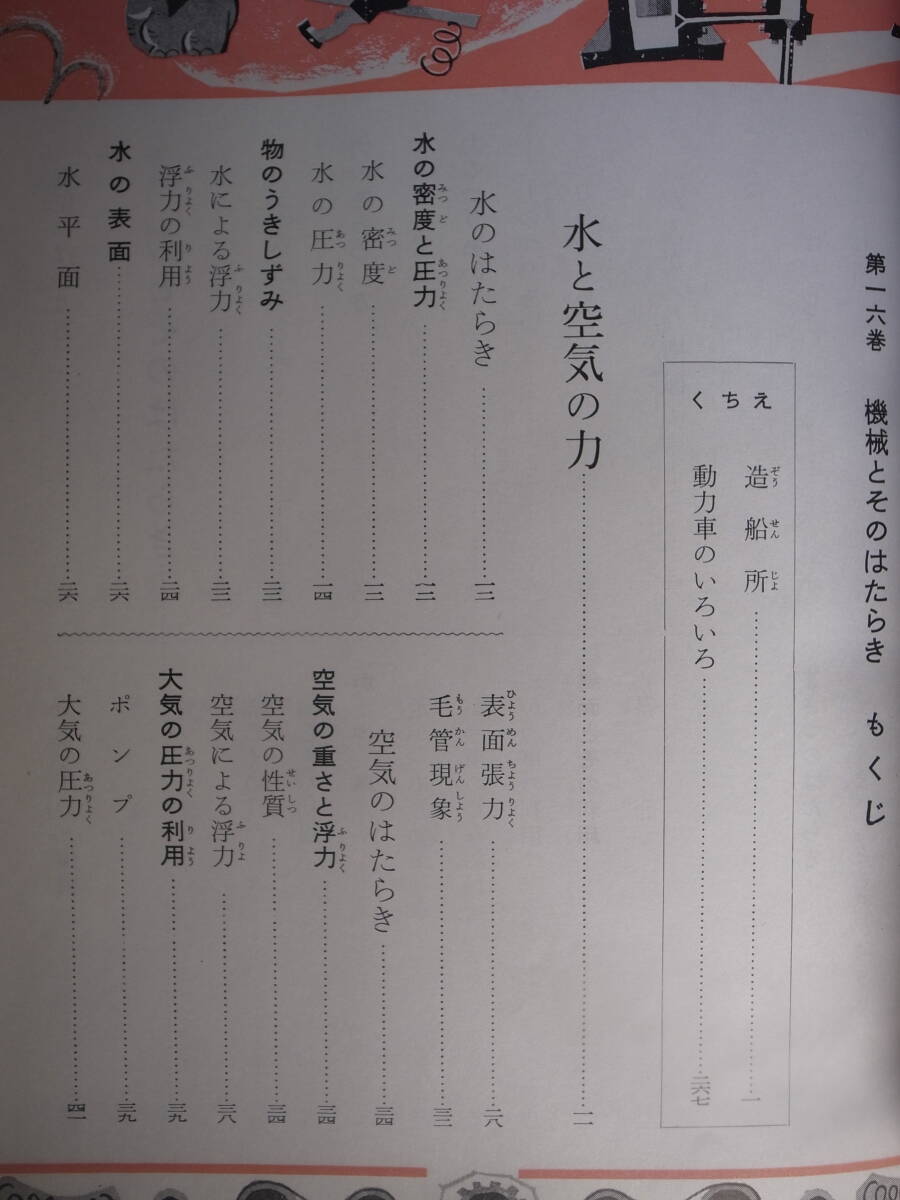 第一六巻 機械とそのはたらき もくじ
くちえ
造船所……一
動力車のいろいろ……二六七
水と空気の力……一一
水のはたらき……一二
水の密度と圧力……一二
水の密度……一二
水の圧力……一四
物のうきしずみ……二二
水による浮力……二二
浮力の利用……二四
水の表面……二六
水平面……二六
表面張力……二八
毛管現象……三二
空気のはたらき……三四
空気の重さと浮力……三四
空気の性質……三四
空気による浮力……三八
大気の圧力の利用……三九
ポンプ……三九
大気の圧力……四一